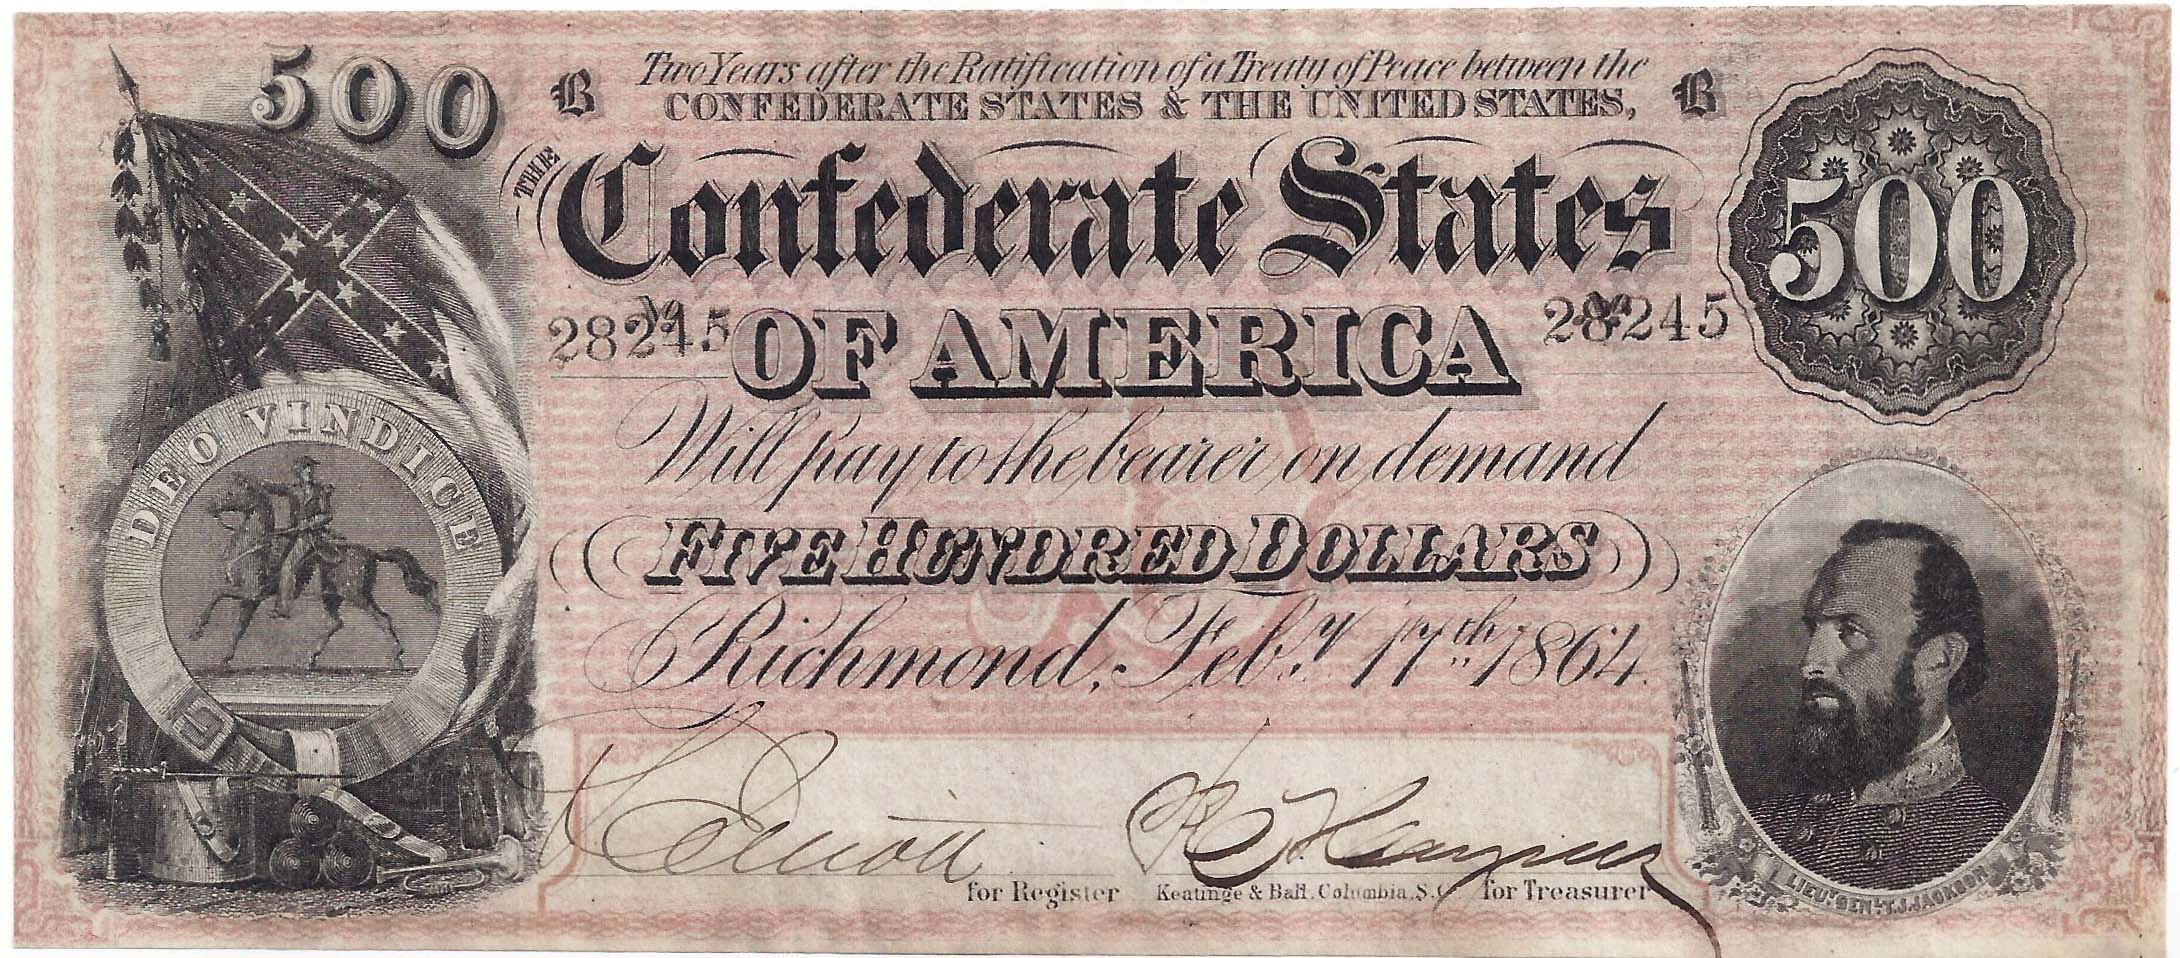 500
B Two Years after the Ratification of a Treaty of Peace between the B
CONFEDERATE STATES & THE UNITED STATES,
THE Confederate States
500
28245 OF AMERICA 28245
Will pay to the bearer on demand
FIVE HUNDRED DOLLARS
Richmond, Feb.y 17th 1864.
DEO VINDICE
for Register Keatinge & Ball, Columbia, S.C. for Treasurer
LIEUT. GENL. T.J. JACKSON